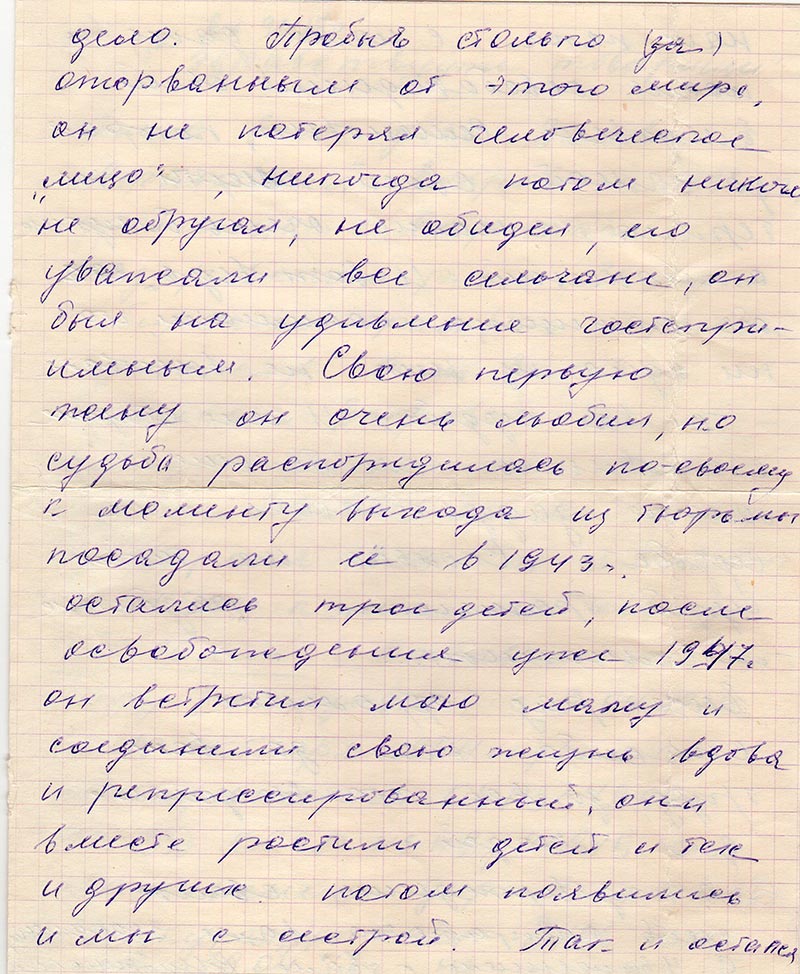 дело. Пробыв столько (за)
оторванным от этого мира,
он не потерял человеческое
"лицо", никогда потом никого
не обругал, не обидел, его
уважали все сельчане, он
был на удивление гостепри-
имным. Свою первую
жену он очень любил, но
судьба распорядилась по-своему
к моменту выхода из тюрьмы
посадали её в 1943 г.
остались трое детей, после
освобождения уже 1947г.
он встретил мою маму и
соединили свою жизнь вдова
и репрессированный, они
вместе ростили детей и тех
и других. потом появились
и мы с сестрой. Так и остался